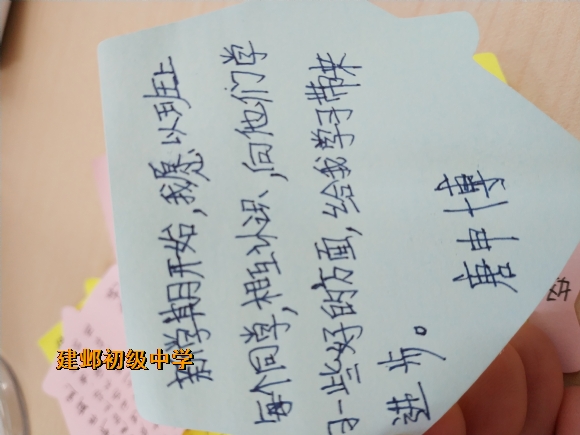 新学期开始,我愿以班上
每个同学,相互认识,向他们学
习一些好的方面,给我学习带来
进步。
唐申博
建邺初级中学